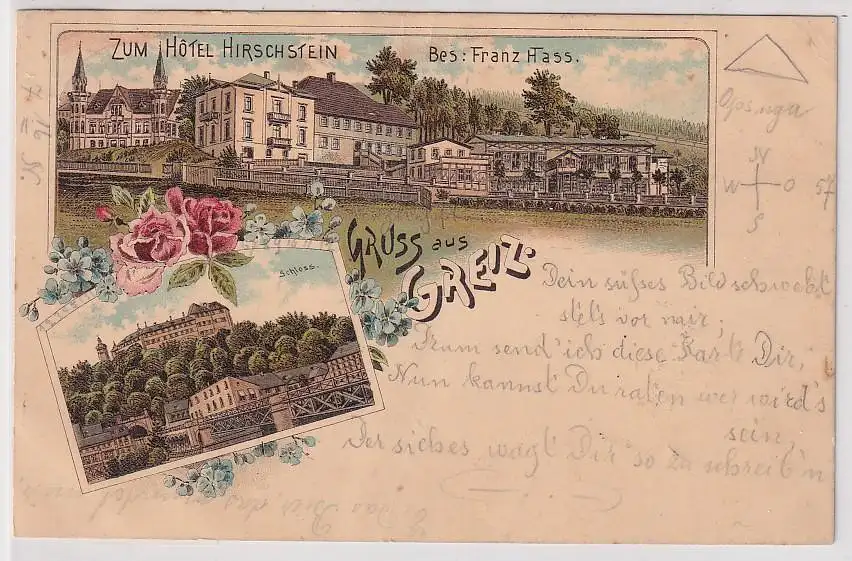 ZUM HÔTEL HIRSCHSTEIN
BES: FRANZ HASS.
GRUSS AUS
GREIZ.
Schloss.
N
W O
S
57
Dein süßes Bild schwebt
stets vor mir;
Drum send' ich diese Kart' Dir,
Nun kannst Du raten wer wird's
sein,
Der sich es wagt Dir so zu schreib'n